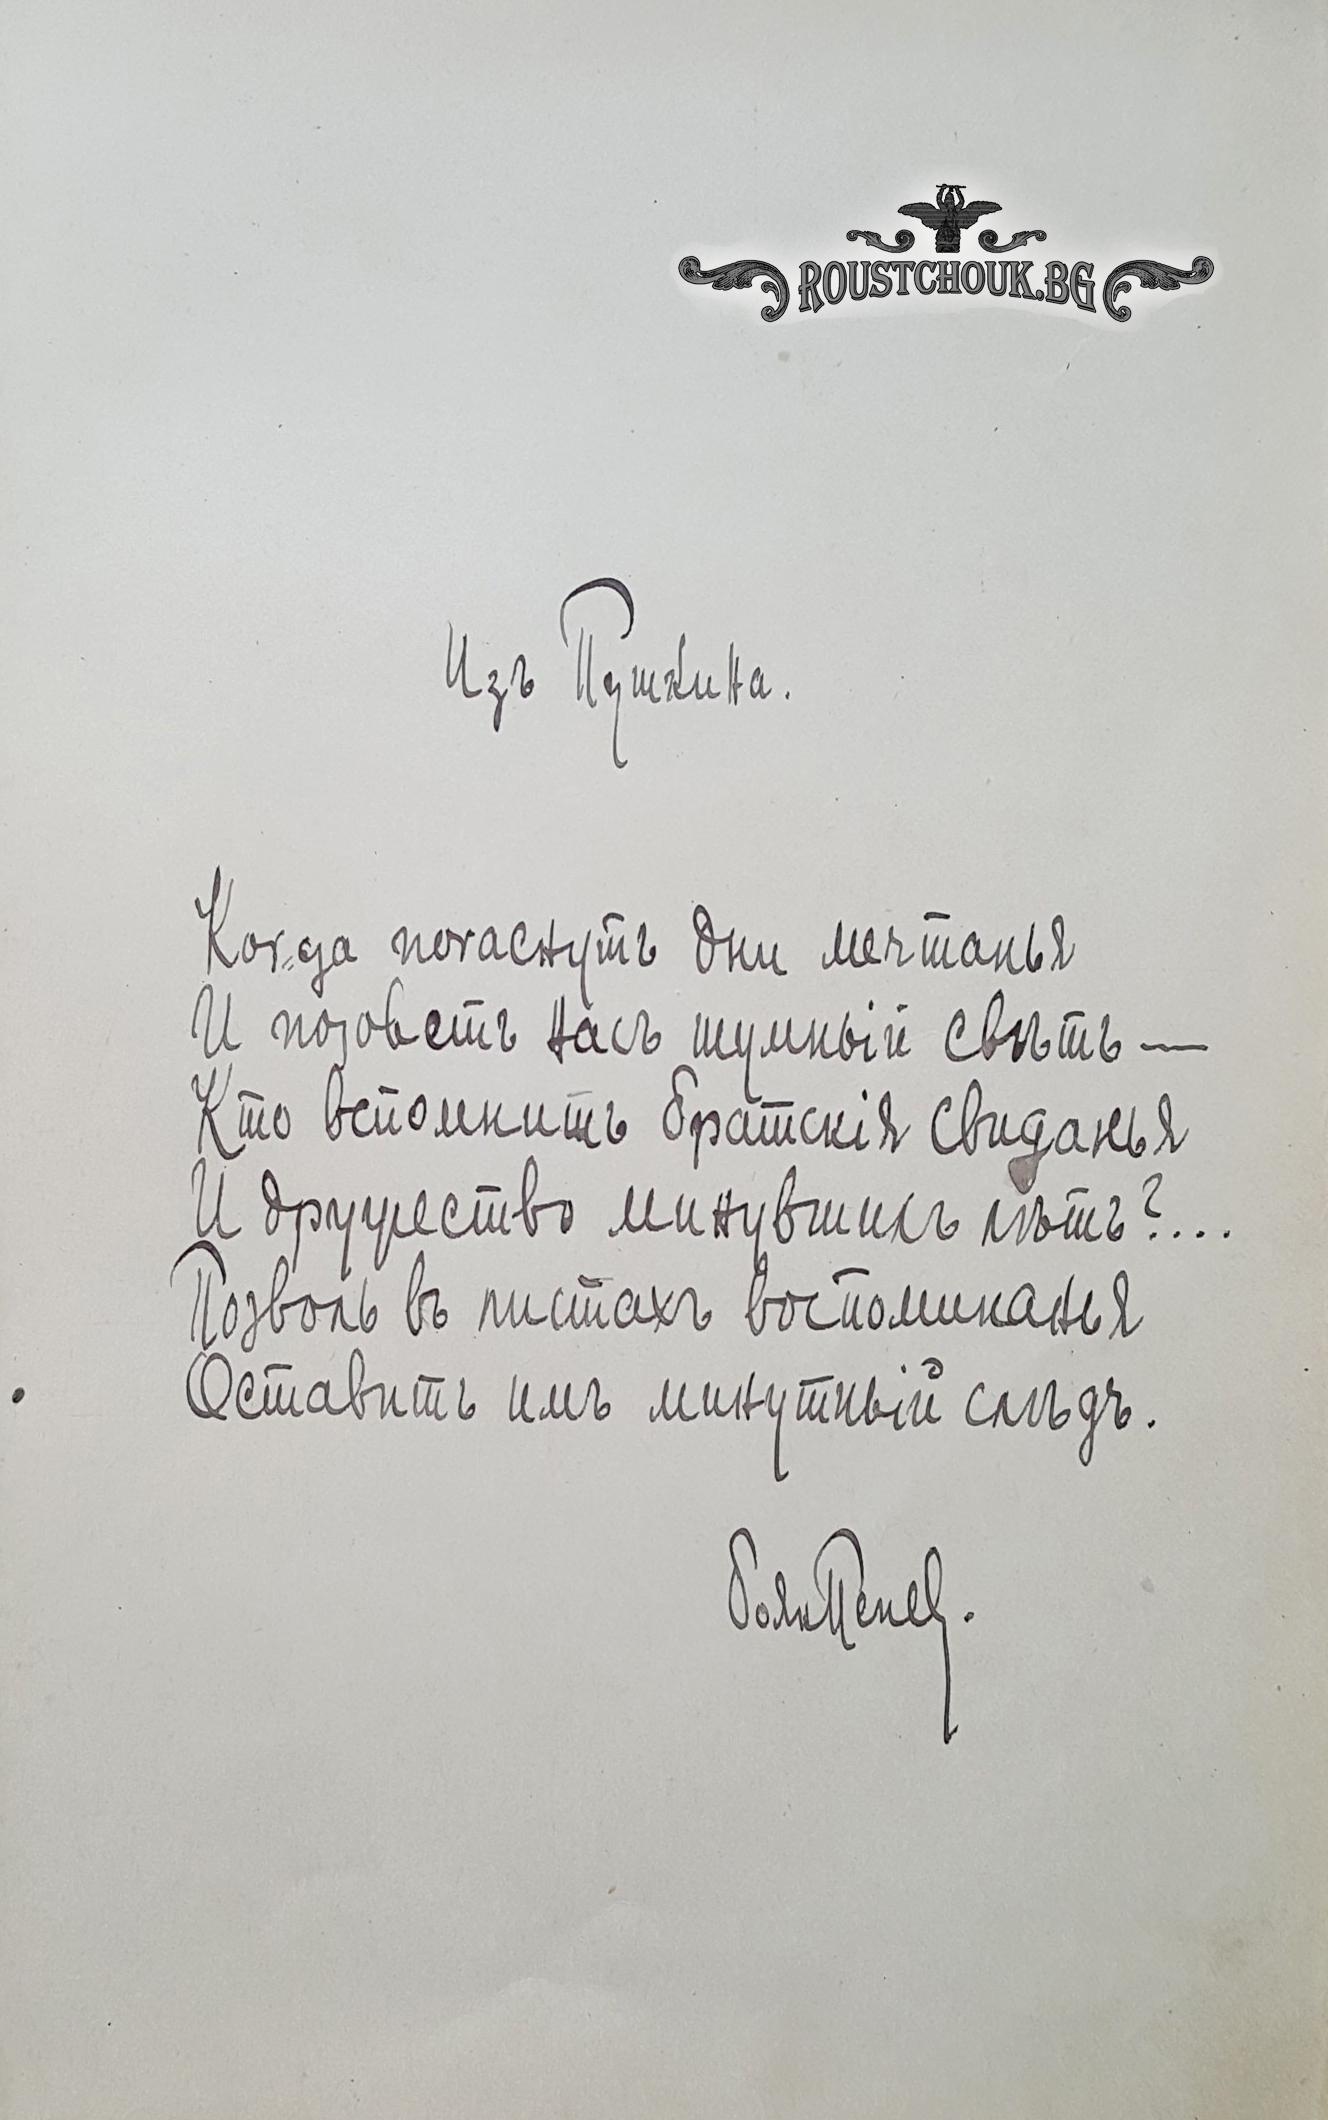 ROUSTCHOUK.BG
Изъ Пушкина.
Когда погаснутъ дни мечтанья
И позоветъ насъ шумный свѣтъ —
Кто вспомнитъ братскія свиданья
И дружество минувшихъ лѣтъ?...
Позволь въ листахъ воспоминанья
Оставить имъ минутный слѣдъ.
Боян Пенев.